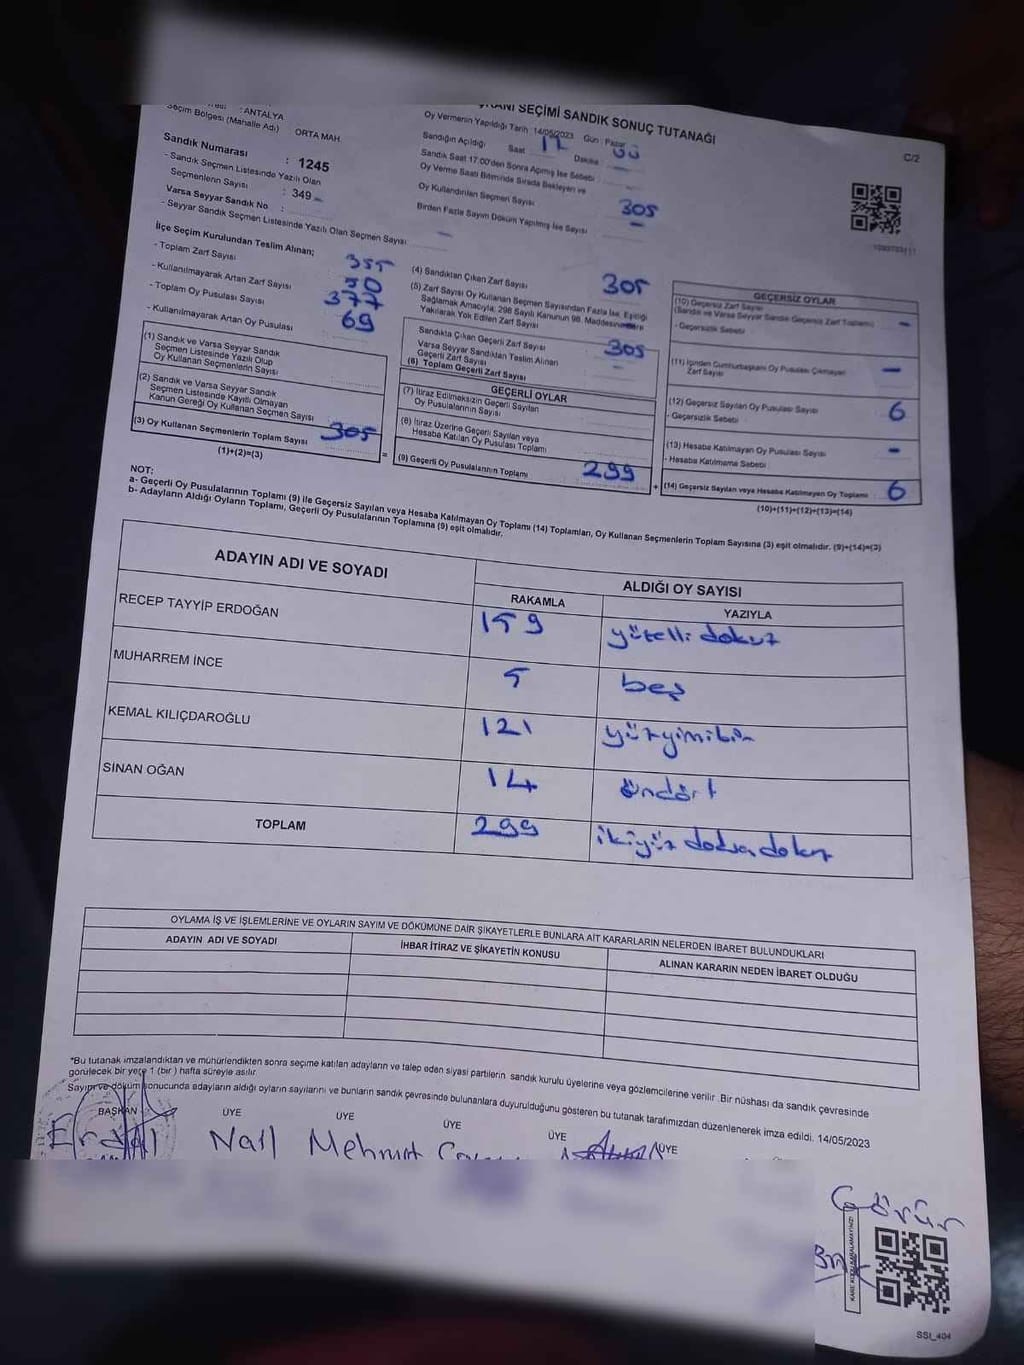 SEÇİMİ SANDIK SONUÇ TUTANAĞI
: ANTALYA
Seçim Bölgesi (Mahalle Adı) : ORTA MAH.
Sandık Numarası : 1245
- Sandık Seçmen Listesinde Yazılı Olan
Seçmenlerin Sayısı : 349
Varsa Seyyar Sandık No :
- Seyyar Sandık Seçmen Listesinde Yazılı Olan Seçmen Sayısı -
Oy Vermenin Yapıldığı Tarih : 14/05/2023 Gün : Pazar
Sandığın Açıldığı Saat 17 Dakika 00
Sandık Saat 17.00'den Sonra Açılmış İse Sebebi -
Oy Verme Saati Bitiminde Sırada Bekleyen ve
Oy Kullandırılan Seçmen Sayısı 305
Birden Fazla Sayım Döküm Yapılmış İse Sayısı -
C/2
İlçe Seçim Kurulundan Teslim Alınan;
- Toplam Zarf Sayısı 355
- Kullanılmayarak Artan Zarf Sayısı 50
- Toplam Oy Pusulası Sayısı 377
- Kullanılmayarak Artan Oy Pusulası 69
(1) Sandık ve Varsa Seyyar Sandık
Seçmen Listesinde Yazılı Olup
Oy Kullanan Seçmenlerin Sayısı
(2) Sandık ve Varsa Seyyar Sandık
Seçmen Listesinde Kayıtlı Olmayan
Kanun Gereği Oy Kullanan Seçmen Sayısı
(3) Oy Kullanan Seçmenlerin Toplam Sayısı 305
(1)+(2)=(3)
(4) Sandıktan Çıkan Zarf Sayısı 305
(5) Zarf Sayısı Oy Kullanan Seçmen Sayısından Fazla İse, Eşitliği
Sağlamak Amacıyla, 298 Sayılı Kanunun 98. Maddesine Göre
Yakılarak Yok Edilen Zarf Sayısı -
Sandıkta Çıkan Geçerli Zarf Sayısı 305
Varsa Seyyar Sandıktan Teslim Alınan
Geçerli Zarf Sayısı -
(6) Toplam Geçerli Zarf Sayısı
GEÇERLİ OYLAR
(7) İtiraz Edilmeksizin Geçerli Sayılan
Oy Pusulalarının Sayısı
(8) İtiraz Üzerine Geçerli Sayılan veya
Hesaba Katılan Oy Pusulası Toplamı
(9) Geçerli Oy Pusulalarının Toplamı 299
GEÇERSİZ OYLAR
(10) Geçersiz Zarf Sayısı
(Sandık ve Varsa Seyyar Sandık Geçersiz Zarf Toplamı) -
- Geçersizlik Sebebi
(11) İçinden Cumhurbaşkanı Oy Pusulası Çıkmayan
Zarf Sayısı -
(12) Geçersiz Sayılan Oy Pusulası Sayısı 6
- Geçersizlik Sebebi
(13) Hesaba Katılmayan Oy Pusulası Sayısı -
- Hesaba Katılmama Sebebi
(14) Geçersiz Sayılan veya Hesaba Katılmayan Oy Toplamı 6
(10)+(11)+(12)+(13)=(14)
NOT:
a- Geçerli Oy Pusulalarının Toplamı (9) ile Geçersiz Sayılan veya Hesaba Katılmayan Oy Toplamı (14) Toplamları, Oy Kullanan Seçmenlerin Toplam Sayısına (3) eşit olmalıdır. (9)+(14)=(3)
b- Adayların Aldığı Oyların Toplamı, Geçerli Oy Pusulalarının Toplamına (9) eşit olmalıdır.
ADAYIN ADI VE SOYADI ALDIĞI OY SAYISI
RAKAMLA YAZIYLA
RECEP TAYYİP ERDOĞAN 159 yüzelli dokuz
MUHARREM İNCE 5 beş
KEMAL KILIÇDAROĞLU 121 yüzyimibir
SİNAN OĞAN 14 öndört
TOPLAM 299 ikiyüz doksa dokuz
OYLAMA İŞ VE İŞLEMLERİNE VE OYLARIN SAYIM VE DÖKÜMÜNE DAİR ŞİKAYETLERLE BUNLARA AİT KARARLARIN NELERDEN İBARET BULUNDUKLARI
ADAYIN ADI VE SOYADI İHBAR İTİRAZ VE ŞİKAYETİN KONUSU ALINAN KARARIN NEDEN İBARET OLDUĞU
*Bu tutanak imzalandıktan ve mühürlendikten sonra seçime katılan adayların ve talep eden siyasi partilerin sandık kurulu üyelerine veya gözlemcilerine verilir. Bir nüshası da sandık çevresinde
görülecek bir yere 1 (bir) hafta süreyle asılır.
Sayım ve döküm sonucunda adayların aldığı oyların sayılarını ve bunların sandık çevresinde bulunanlara duyurulduğunu gösteren bu tutanak tarafımızdan düzenlenerek imza edildi. 14/05/2023
BAŞKAN ÜYE ÜYE ÜYE ÜYE ÜYE
Erdal Nail Mehmet
Görür
KARE KODU KARALAMAYINIZ!
SSI_404